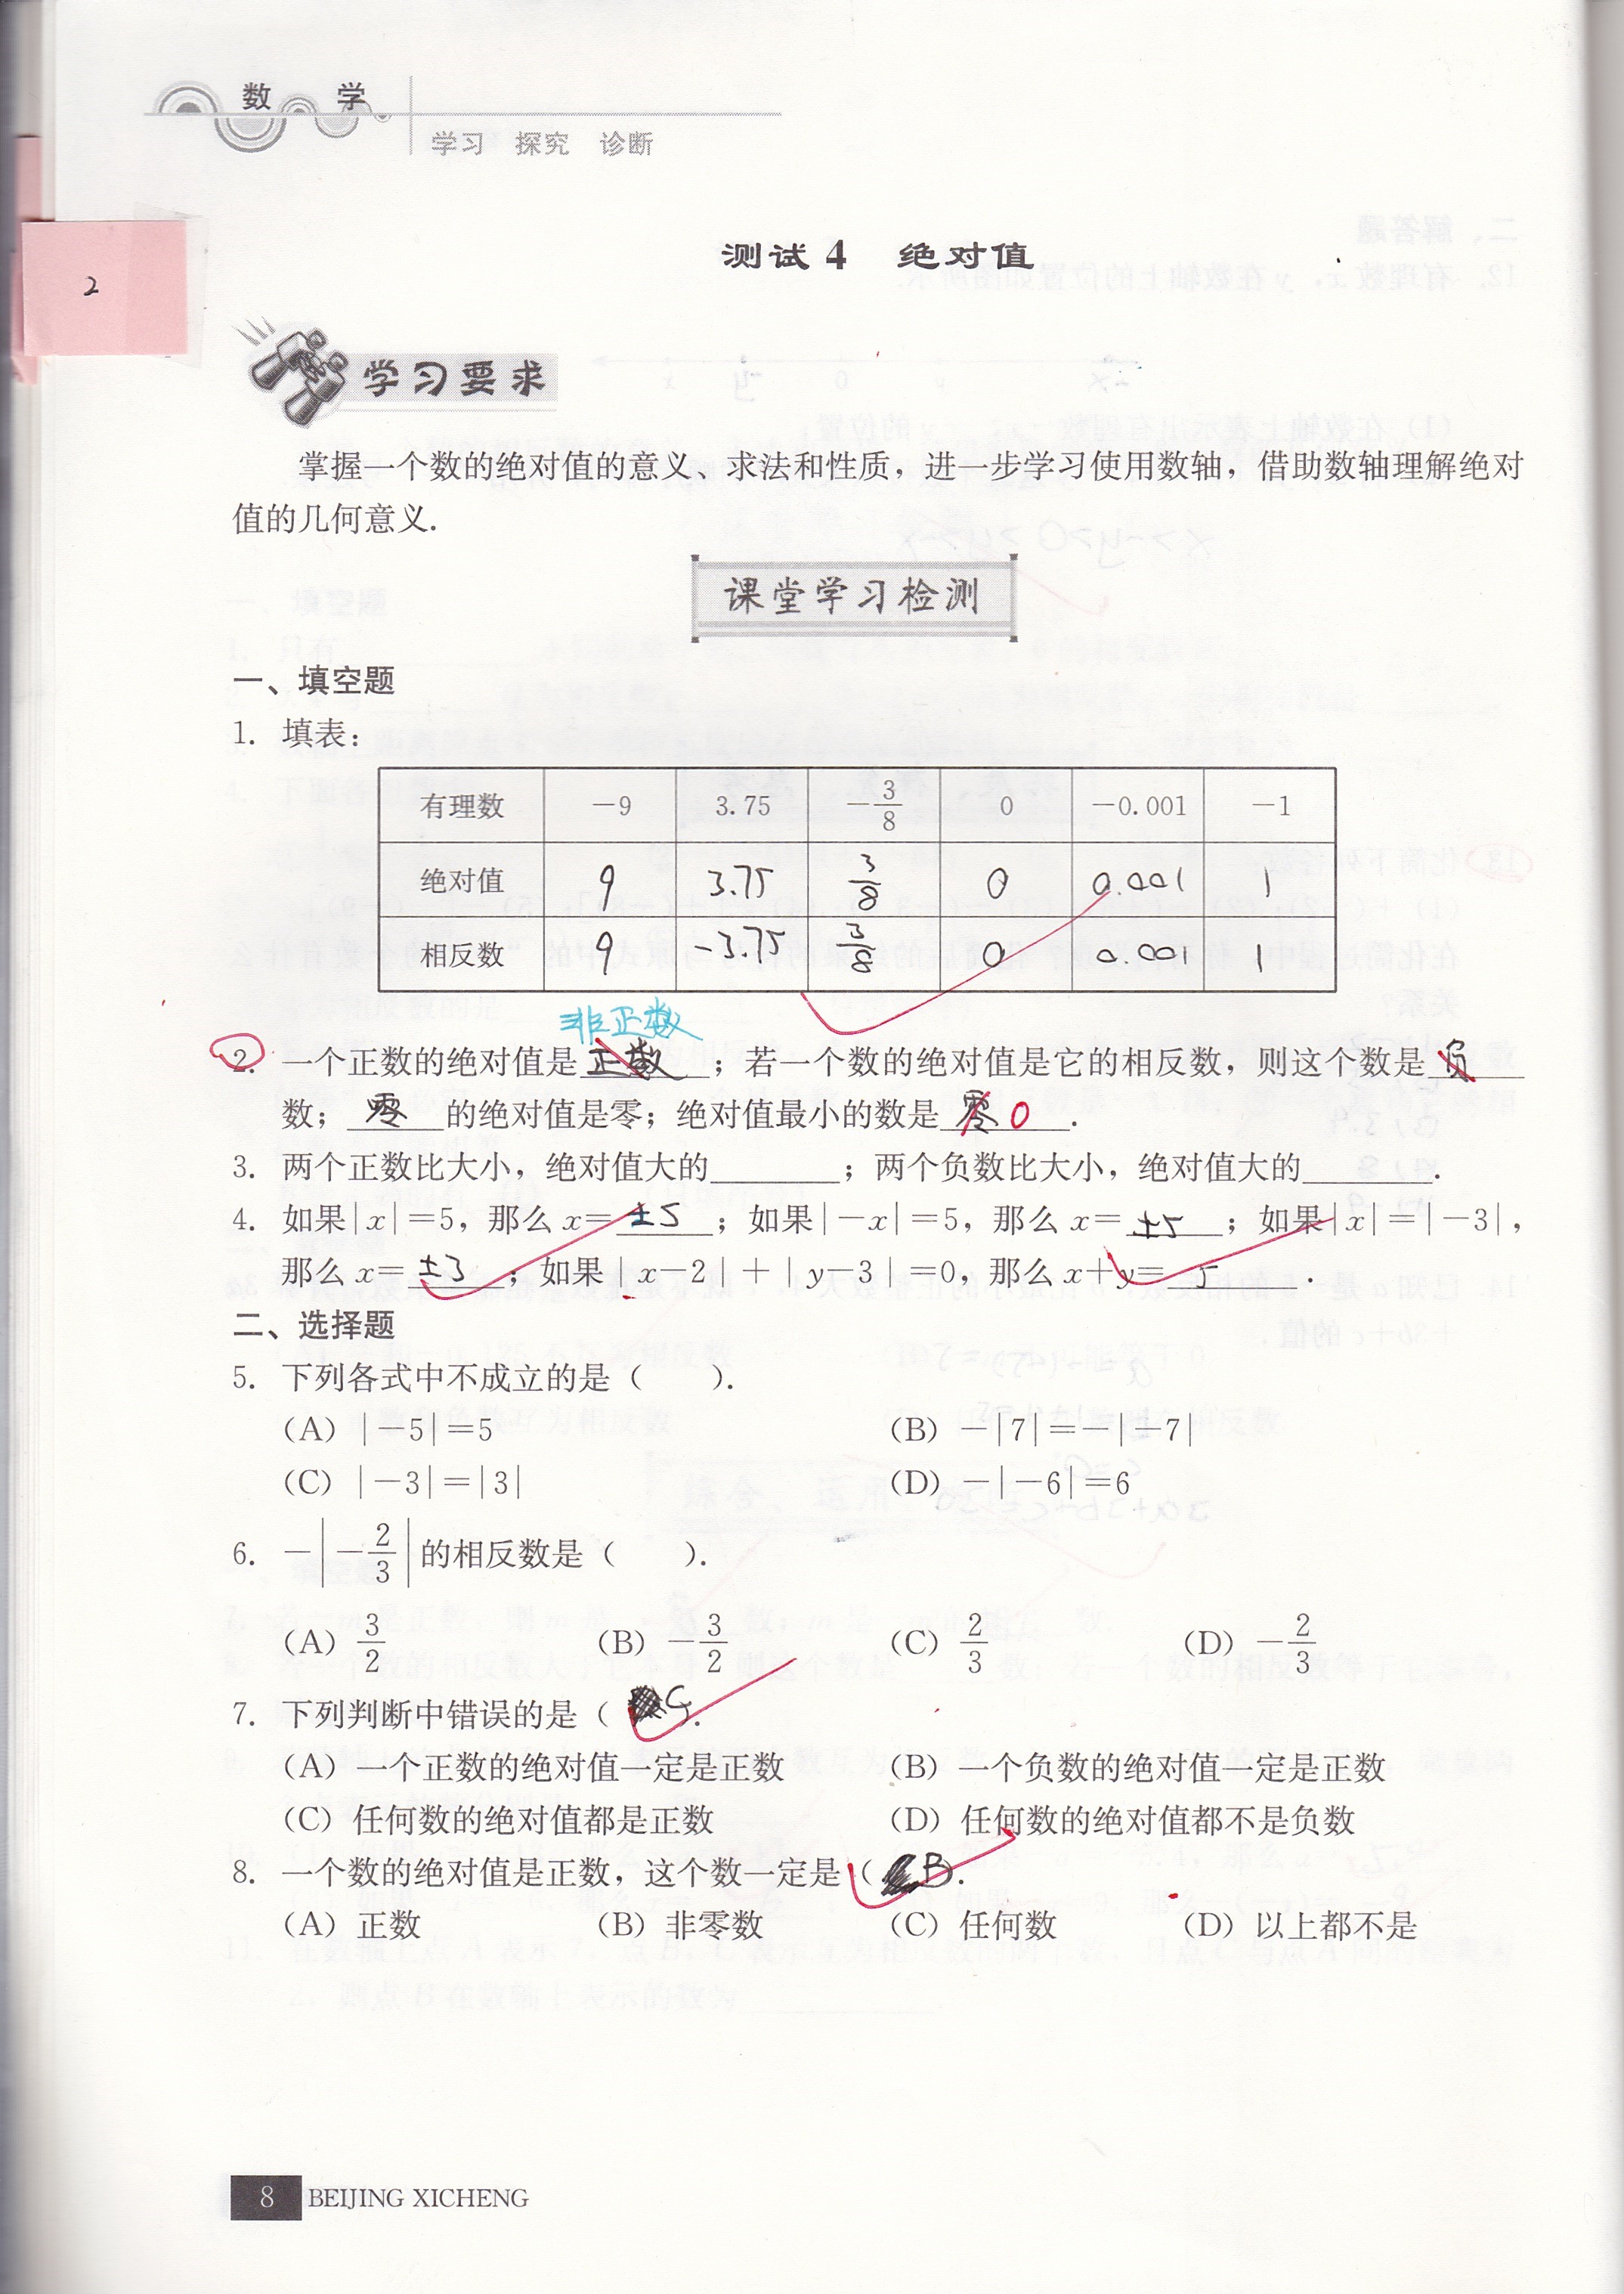 数 学
学习 探究 诊断
2
测试4 绝对值
学习要求
掌握一个数的绝对值的意义、求法和性质，进一步学习使用数轴，借助数轴理解绝对
值的几何意义.
课堂学习检测
一、填空题
1. 填表：
有理数 －9 3.75 －3/8 0 －0.001 －1
绝对值 9 3.75 3/8 0 0.001 1
相反数 9 -3.75 3/8 0 0.001 1
非正数
2. 一个正数的绝对值是 正数 ；若一个数的绝对值是它的相反数，则这个数是 负
数； 零 的绝对值是零；绝对值最小的数是 零 0 .
3. 两个正数比大小，绝对值大的________；两个负数比大小，绝对值大的________.
4. 如果|x|＝5，那么x＝ ±5 ；如果|－x|＝5，那么x＝ ±5 ；如果|x|＝|－3|，
那么x＝ ±3 ；如果|x－2|＋|y－3|＝0，那么x＋y＝ 5 .
二、选择题
5. 下列各式中不成立的是（ ）.
（A）|－5|＝5 （B）－|7|＝－|－7|
（C）|－3|＝|3| （D）－|－6|＝6
6. －|－2/3|的相反数是（ ）.
（A）3/2 （B）－3/2 （C）2/3 （D）－2/3
7. 下列判断中错误的是（ C ）.
（A）一个正数的绝对值一定是正数 （B）一个负数的绝对值一定是正数
（C）任何数的绝对值都是正数 （D）任何数的绝对值都不是负数
8. 一个数的绝对值是正数，这个数一定是（ B ）.
（A）正数 （B）非零数 （C）任何数 （D）以上都不是
8 BEIJING XICHENG